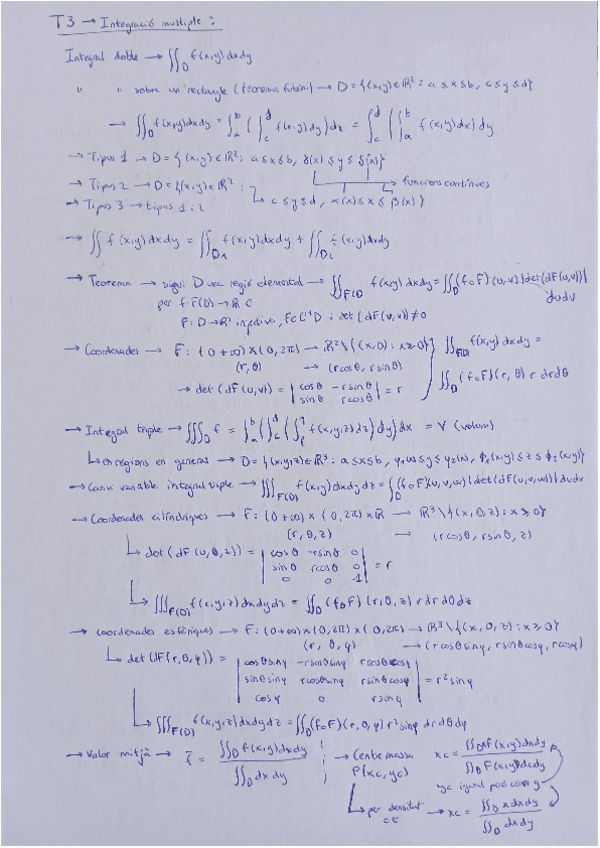 T3 → Integració multiple:
Integral doble → ∬_D f(x,y) dx dy
" " sobre un rectangle (teorema fubini) → D = {(x,y) ∈ ℝ² : a ≤ x ≤ b, c ≤ y ≤ d}
→ ∬_D f(x,y) dx dy = ∫_a^b (∫_c^d f(x,y) dy) dx = ∫_c^d (∫_a^b f(x,y) dx) dy
→ Tipus 1 → D = {(x,y) ∈ ℝ² : a ≤ x ≤ b, γ(x) ≤ y ≤ δ(x)}
→ Tipus 2 → D = {(x,y) ∈ ℝ² : → funcions contínues
→ Tipus 3 → tipus 1 i 2 ↳ c ≤ y ≤ d, α(x) ≤ x ≤ β(x)}
→ ∬ f(x,y) dx dy = ∬_D1 f(x,y) dx dy + ∬_D2 f(x,y) dx dy
→ Teorema → sigui D una regió elemental → ∬_F(D) f(x,y) dx dy = ∬_D (f∘F)(u,v) |det(dF(u,v))| du dv
per f: F(D) → ℝ C
F: D → ℝ² injectiva, F ∈ C¹ D i det(dF(u,v)) ≠ 0
→ Coordenades → F: (0 +∞) × (0, 2π) → ℝ² \ {(x,0) : x ≥ 0} ∬_F(D) f(x,y) dx dy =
(r, θ) → (r cosθ, r sinθ) ∬_D (f∘F)(r, θ) r dr dθ
→ det(dF(u,v)) = | cosθ -r sinθ | = r
| sinθ r cosθ |
→ Integral triple → ∭_D f = ∫_a^b (∫_c^d (∫_p^q f(x,y,z) dz) dy) dx = V (volum)
↳ en regions en general → D = {(x,y,z) ∈ ℝ³ : a ≤ x ≤ b, φ₁(x) ≤ y ≤ φ₂(x), ϕ₁(x,y) ≤ z ≤ ϕ₂(x,y)}
→ Canvi variable integral triple → ∭_F(D) f(x,y) dx dy dz = ∫_D (f∘F)(u,v,w) |det(dF(u,v,w))| du dv
→ Coordenades cilíndriques → F: (0 +∞) × (0, 2π) × ℝ → ℝ³ \ {(x, 0, z) : x ≥ 0}
(r, θ, z) → (r cosθ, r sinθ, z)
↳ det(dF(u,θ,z)) = | cosθ -r sinθ 0 |
| sinθ r cosθ 0 | = r
| 0 0 1 |
↳ ∭_F(D) f(x,y,z) dx dy dz = ∬_D (f∘F)(r, θ, z) r dr dθ dz
→ Coordenades esfèriques → F: (0 +∞) × (0, 2π) × (0, 2π) → ℝ³ \ {(x, 0, z) : x ≥ 0}
(r, θ, φ) → (r cosθ sinφ, r sinθ cosφ, r cosφ)
↳ det(dF(r, θ, φ)) = | cosθ sinφ -r sinθ sinφ r cosθ cosφ |
| sinθ sinφ r cosθ sinφ r sinθ cosφ | = r² sinφ
| cosφ 0 r sinφ |
↳ ∭_F(D) f(x,y,z) dx dy dz = ∬_D (f∘F)(r, θ, φ) r² sinφ dr dθ dφ
→ Valor mitjà → f̄ = ∬_D f(x,y) dx dy / ∬_D dx dy → Centre massa P(xc, yc) xc = ∬_D x f(x,y) dx dy / ∬_D f(x,y) dx dy
yc igual però con y
↳ per densitat ct → xc = ∬_D x dx dy / ∬_D dx dy